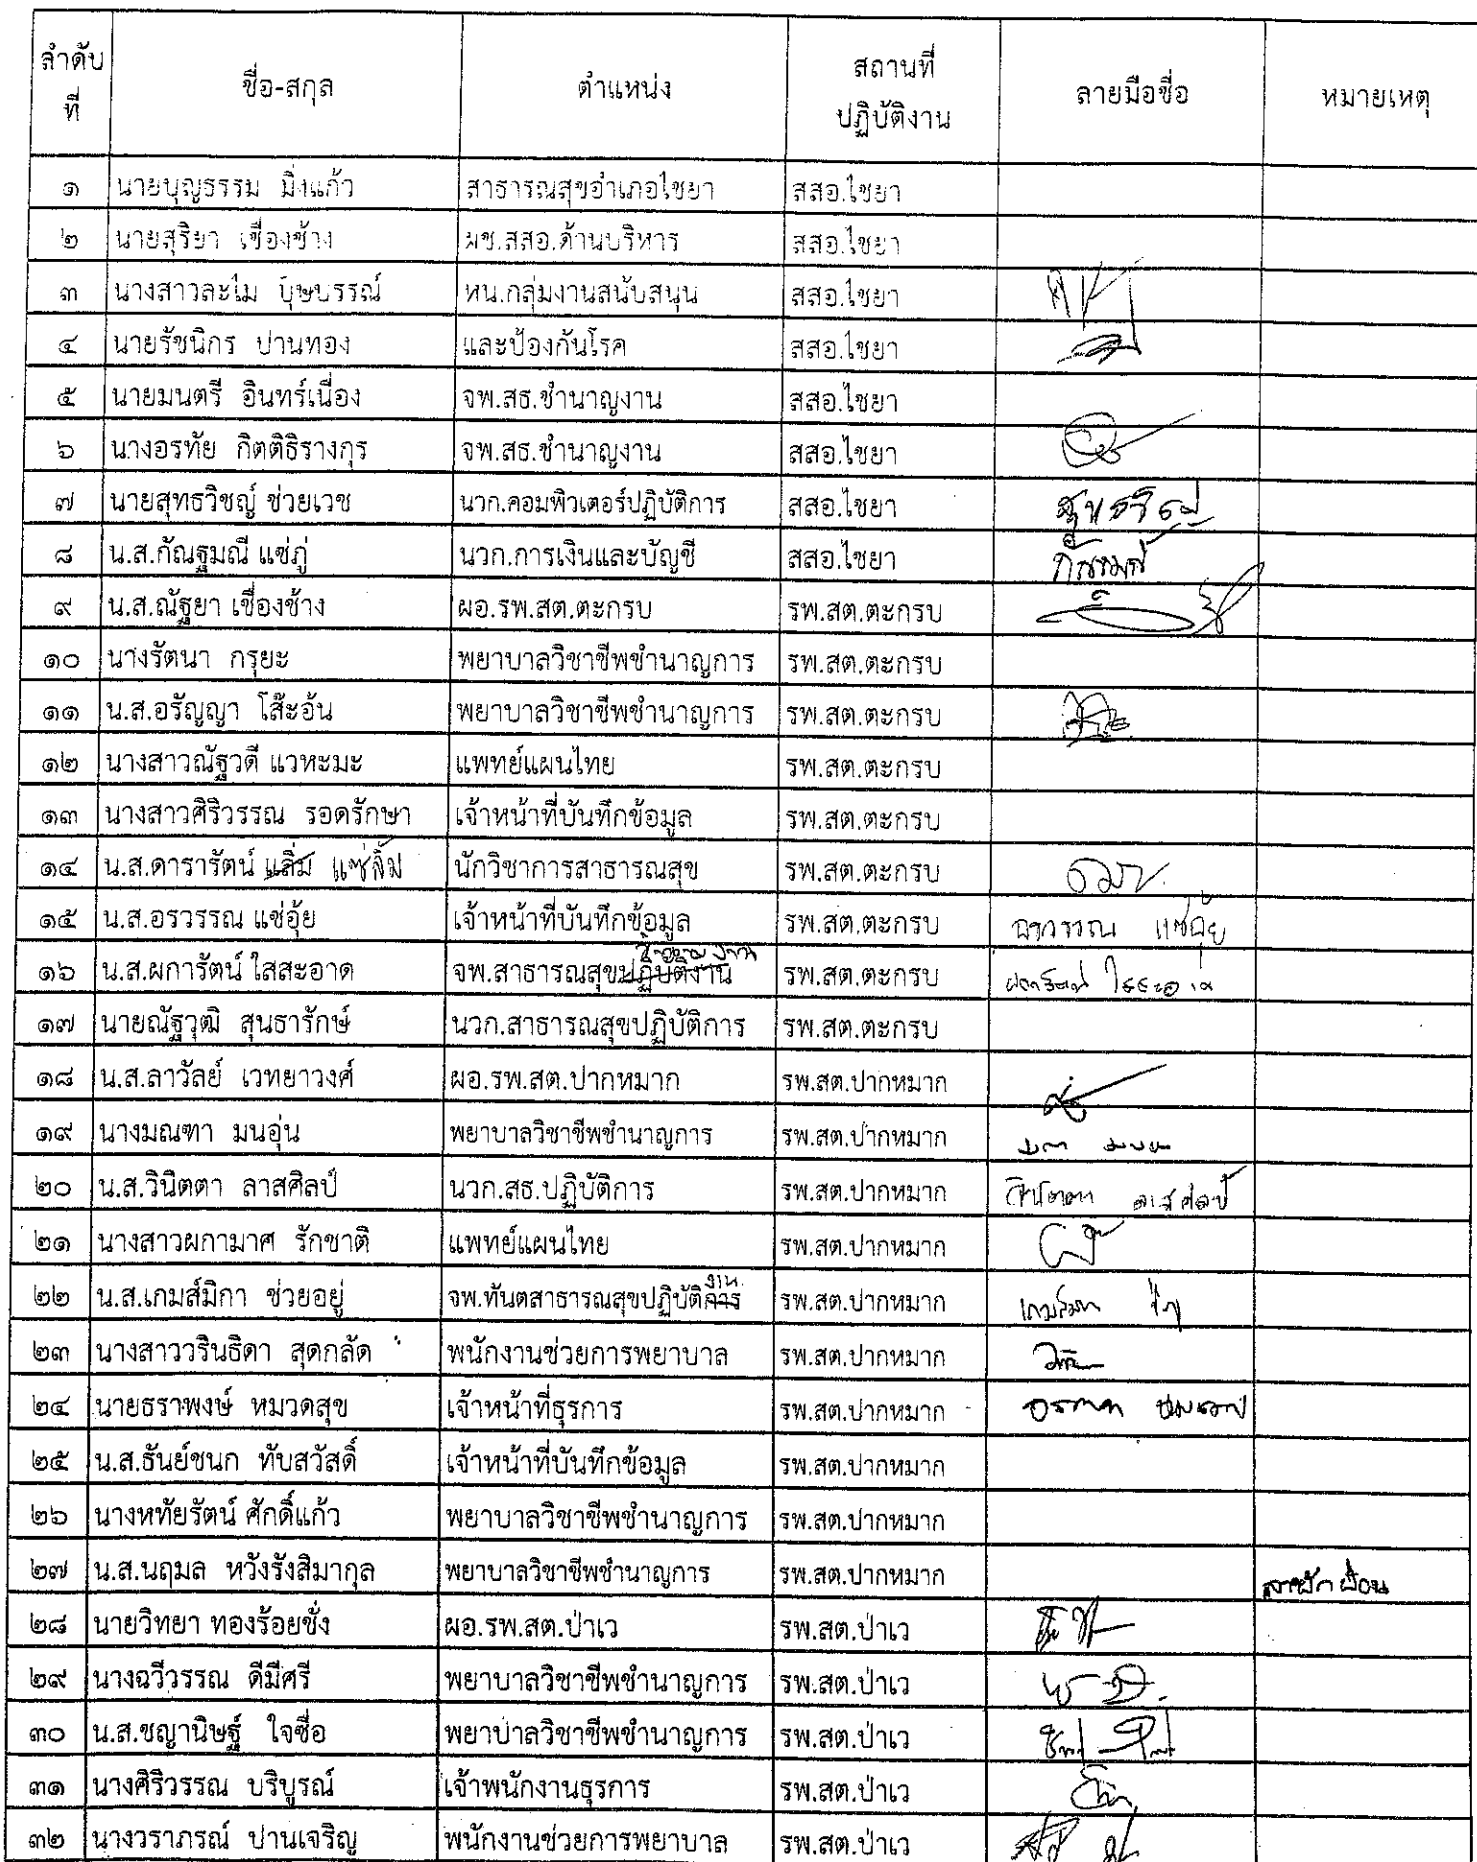 ลำดับที่ ชื่อ-สกุล ตำแหน่ง สถานที่ปฏิบัติงาน ลายมือชื่อ หมายเหตุ
๑ นายบุญธรรม มิ่งแก้ว สาธารณสุขอำเภอไชยา สสอ.ไชยา
๒ นายสุริยา เชื่องช้าง ผช.สสอ.ด้านบริหาร สสอ.ไชยา
๓ นางสาวละไม บุษบรรณ์ หน.กลุ่มงานสนับสนุน สสอ.ไชยา
๔ นายรัชนิกร ปานทอง และป้องกันโรค สสอ.ไชยา
๕ นายมนตรี อินทร์เนื่อง จพ.สธ.ชำนาญงาน สสอ.ไชยา
๖ นางอรทัย กิตติธิรางกุร จพ.สธ.ชำนาญงาน สสอ.ไชยา
๗ นายสุทธวิชญ์ ช่วยเวช นวก.คอมพิวเตอร์ปฏิบัติการ สสอ.ไชยา
๘ น.ส.กัณฐมณี แซ่ภู่ นวก.การเงินและบัญชี สสอ.ไชยา
๙ น.ส.ณัฐยา เชื่องช้าง ผอ.รพ.สต.ตะกรบ รพ.สต.ตะกรบ
๑๐ นางรัตนา กรุยะ พยาบาลวิชาชีพชำนาญการ รพ.สต.ตะกรบ
๑๑ น.ส.อรัญญา โส๊ะอ้น พยาบาลวิชาชีพชำนาญการ รพ.สต.ตะกรบ
๑๒ นางสาวณัฐวดี แวหะมะ แพทย์แผนไทย รพ.สต.ตะกรบ
๑๓ นางสาวศิริวรรณ รอดรักษา เจ้าหน้าที่บันทึกข้อมูล รพ.สต.ตะกรบ
๑๔ น.ส.ดารารัตน์ แลิ่ม แซ่ลิ้ม นักวิชาการสาธารณสุข รพ.สต.ตะกรบ
๑๕ น.ส.อรวรรณ แซ่อุ้ย เจ้าหน้าที่บันทึกข้อมูล รพ.สต.ตะกรบ อรวรรณ แซ่อุ้ย
๑๖ น.ส.ผการัตน์ ใสสะอาด จพ.สาธารณสุขปฏิบัติงาน ชำนาญงาน รพ.สต.ตะกรบ ผการัตน์ ใสสะอาด
๑๗ นายณัฐวุฒิ สุนธารักษ์ นวก.สาธารณสุขปฏิบัติการ รพ.สต.ตะกรบ
๑๘ น.ส.ลาวัลย์ เวทยาวงศ์ ผอ.รพ.สต.ปากหมาก รพ.สต.ปากหมาก
๑๙ นางมณฑา มนอุ่น พยาบาลวิชาชีพชำนาญการ รพ.สต.ปากหมาก
๒๐ น.ส.วินิตตา ลาสศิลป์ นวก.สธ.ปฏิบัติการ รพ.สต.ปากหมาก วินิตตา ลาสศิลป์
๒๑ นางสาวผกามาศ รักชาติ แพทย์แผนไทย รพ.สต.ปากหมาก
๒๒ น.ส.เกมส์มิกา ช่วยอยู่ จพ.ทันตสาธารณสุขปฏิบัติการ งาน รพ.สต.ปากหมาก
๒๓ นางสาววรินธิดา สุดกลัด พนักงานช่วยการพยาบาล รพ.สต.ปากหมาก
๒๔ นายธราพงษ์ หมวดสุข เจ้าหน้าที่ธุรการ รพ.สต.ปากหมาก
๒๕ น.ส.ธันย์ชนก ทับสวัสดิ์ เจ้าหน้าที่บันทึกข้อมูล รพ.สต.ปากหมาก
๒๖ นางหทัยรัตน์ ศักดิ์แก้ว พยาบาลวิชาชีพชำนาญการ รพ.สต.ปากหมาก
๒๗ น.ส.นฤมล หวังรังสิมากุล พยาบาลวิชาชีพชำนาญการ รพ.สต.ปากหมาก ลาพักผ่อน
๒๘ นายวิทยา ทองร้อยชั่ง ผอ.รพ.สต.ป่าเว รพ.สต.ป่าเว
๒๙ นางฉวีวรรณ ดีมีศรี พยาบาลวิชาชีพชำนาญการ รพ.สต.ป่าเว
๓๐ น.ส.ชญานิษฐ์ ใจซื่อ พยาบาลวิชาชีพชำนาญการ รพ.สต.ป่าเว
๓๑ นางศิริวรรณ บริบูรณ์ เจ้าพนักงานธุรการ รพ.สต.ป่าเว
๓๒ นางวราภรณ์ ปานเจริญ พนักงานช่วยการพยาบาล รพ.สต.ป่าเว